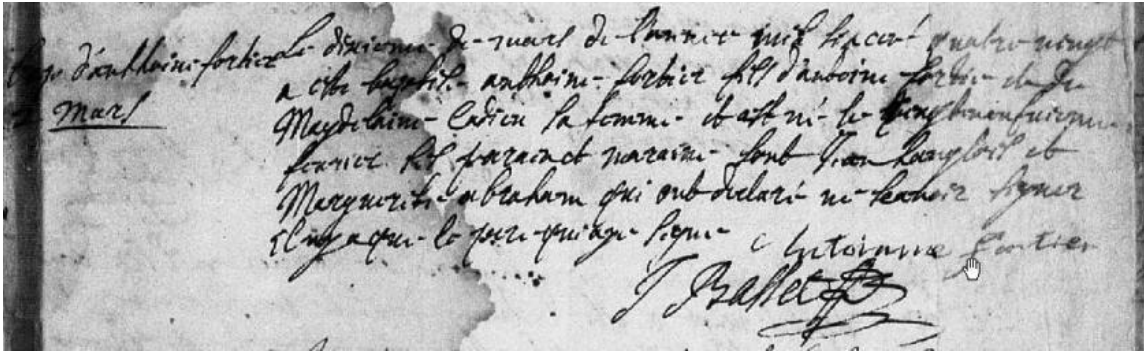 d'anthoine fortier
mars
Le dixieme de mars de l'annee mil six cent quatre vingt
a este baptisé anthoine fortier fils d'antoine fortier et de
Magdelaine Cadieu sa femme et est né le
feurier ses parain et maraine sont Jean Langlois et
Marguerite abraham qui ont declaré ne scauoir signer
Il n'y a que le pere qui aye signe
Antoinne fortier
J Basset